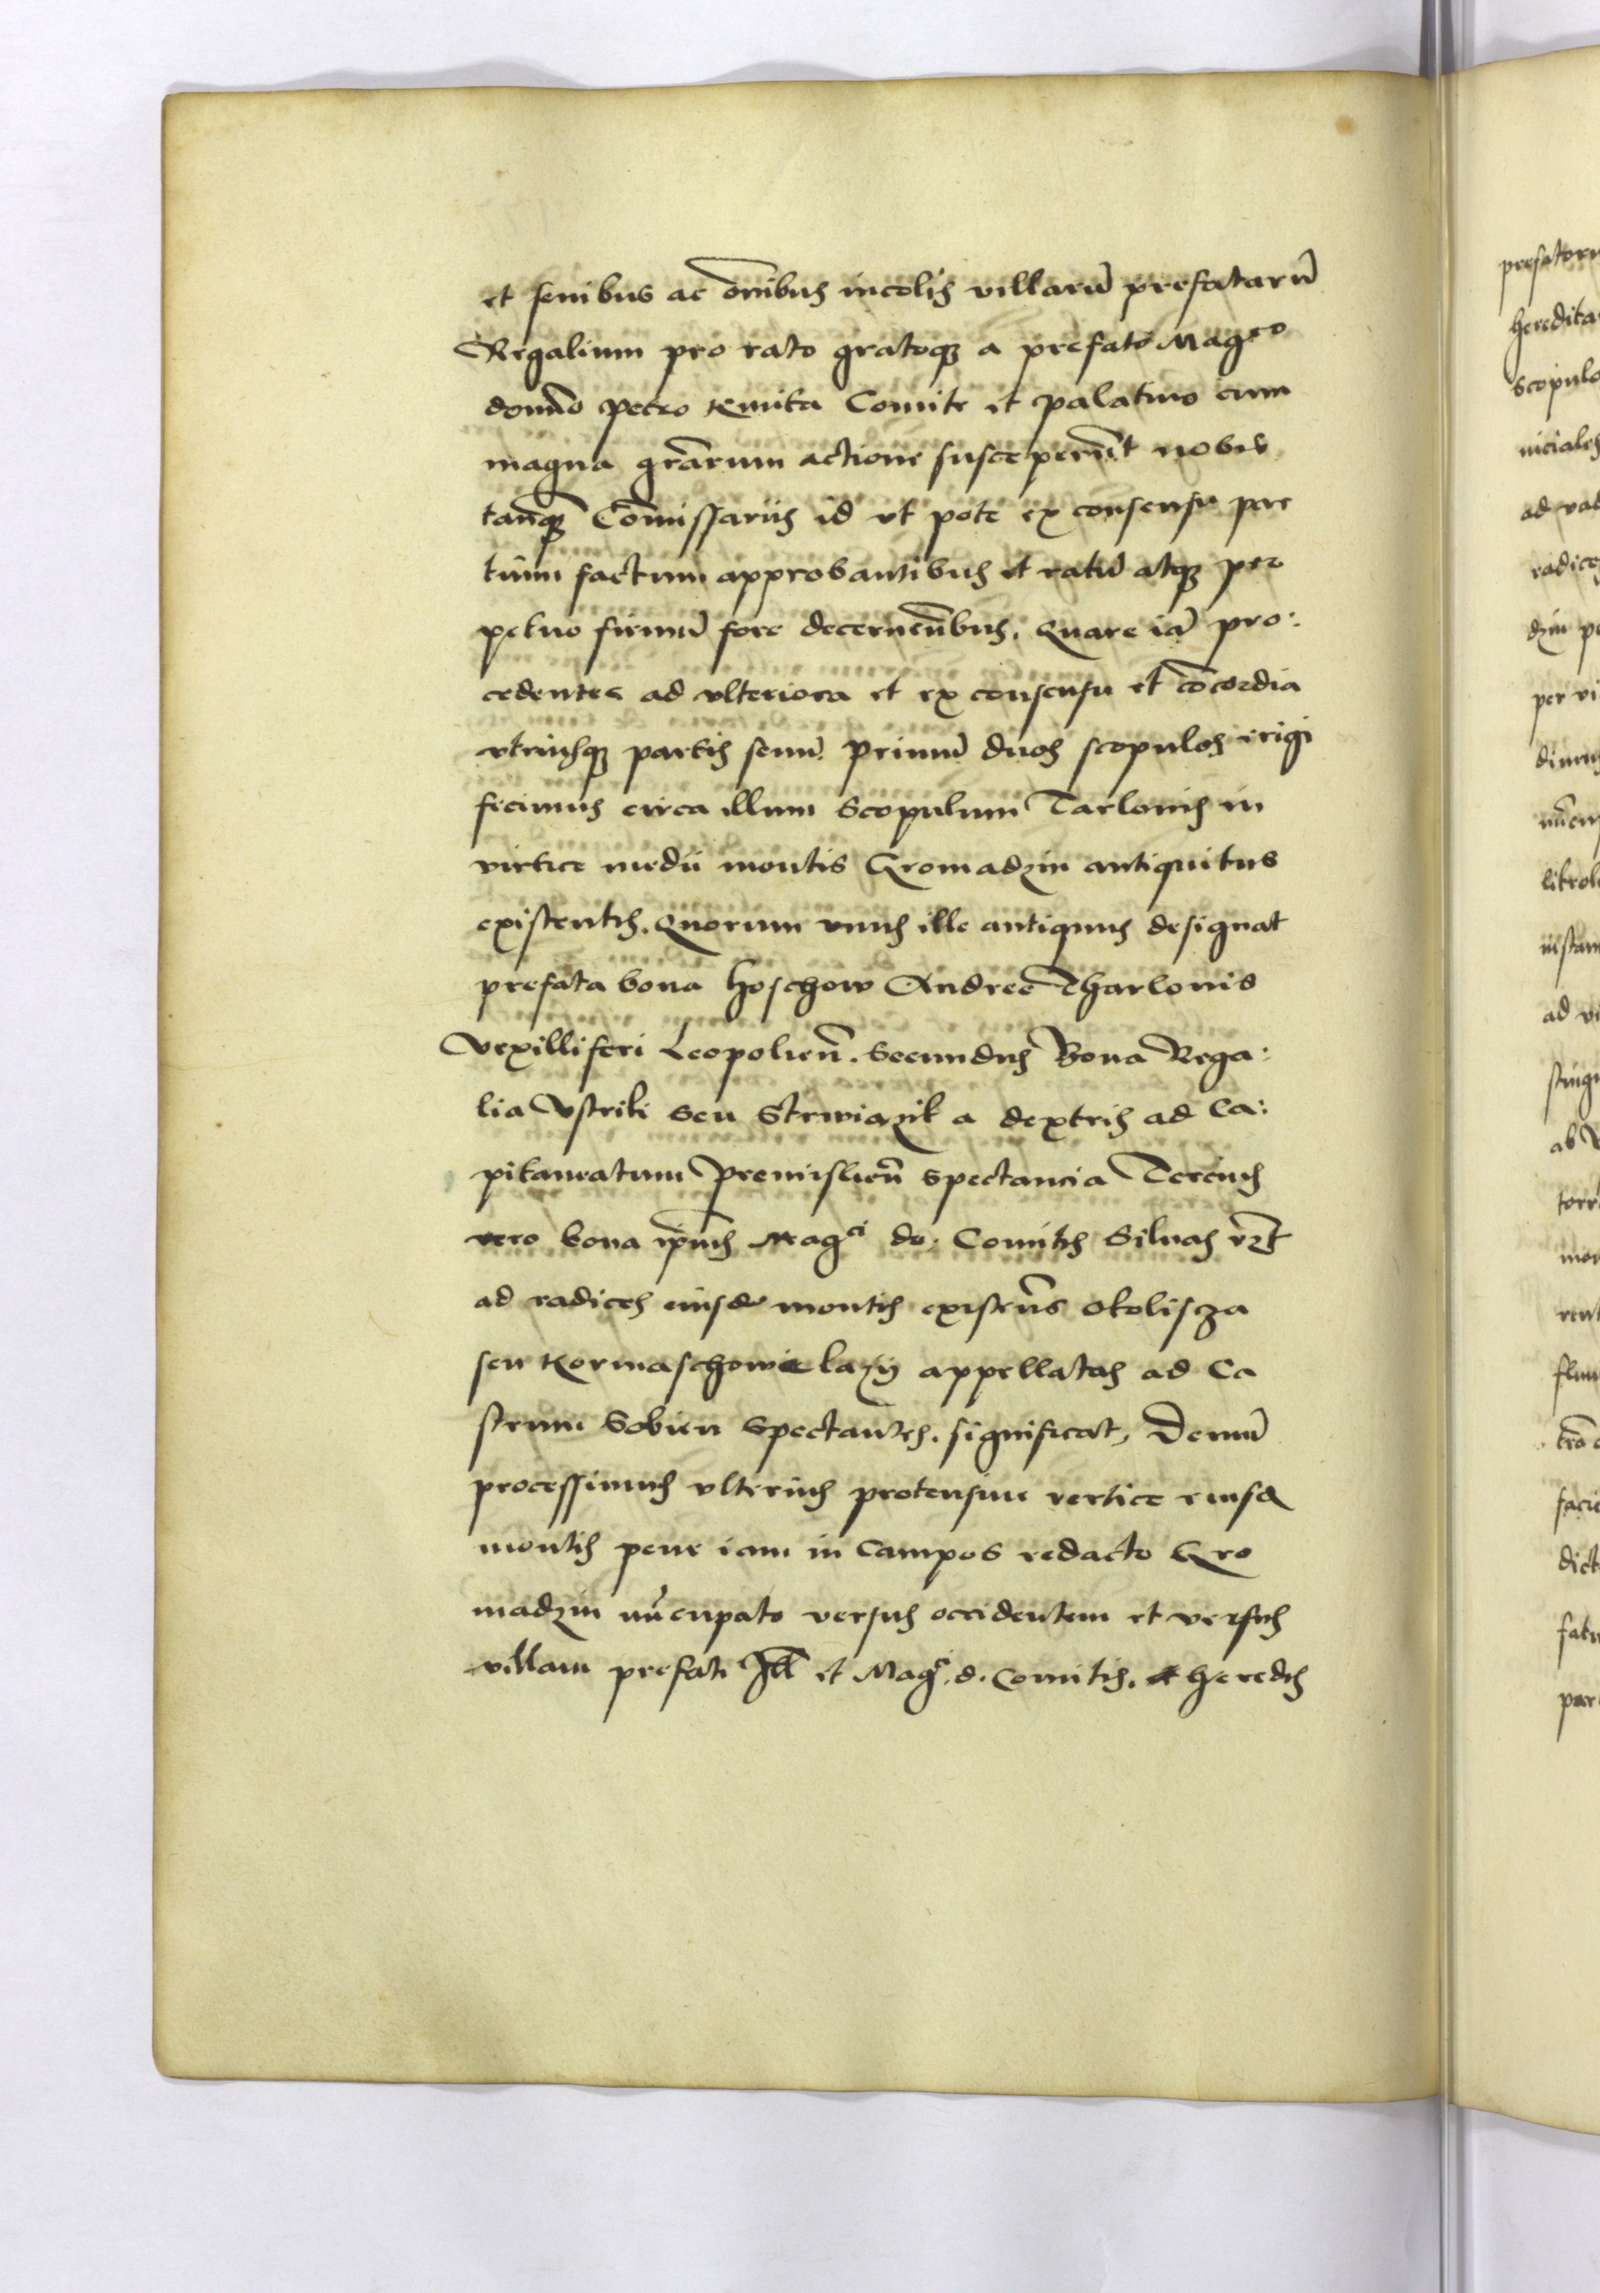 et senibus ac om̄ibus incolis villarū prefatarū
Regalium pro rato gratoq3 a prefato Magco
domīo petro kmita Comite et palatino cum
magna grārum actione susceperūt nobis
tanq3 Com̄issariis id vt pote ex consensu par
tium factum approbantibus et ratū atq3 per
petuo firmū fore decernentibus. Quare iā pro:
cedentes ad vlteriora et ex consensu et cōcordia
vtriusq3 partis Primū duos scopulos erigi
fecimus circa illum Scopulum Tarlonis in
virtice medii montis Gromadzin antiquitus
existentis. Quorum vnus ille antiquus designat
prefata bona Hoschow Andree Tharlonis
Vexilliferi Leopolien̄. Secundus Bona Rega:
lia Vstriki seu Strwiazik a dextris ad Ca:
pitaneatum Premislien̄ spectancia Tercius
vero bona ip̄ius Magci do: Comitis Siluas vz
ad radices eiusd montis existen̄s okolisza
seu Kormaschowe lazy appellatas ad Ca
strum Sobien spectantes. significat, Demū
processimus vlterius protensiue vertice eiusd
montis pene iam in Campos redacto Gro
madzin nūcupato versus occidentem et versus
villam prefati Ill et Magci. d. Comitis. et heredis
prefatoru
hereditar
scopulo
niciales
ad rad
radices
dzin pe
per vi
ad vi
mon
vent
flun
facie
dict
fate
par